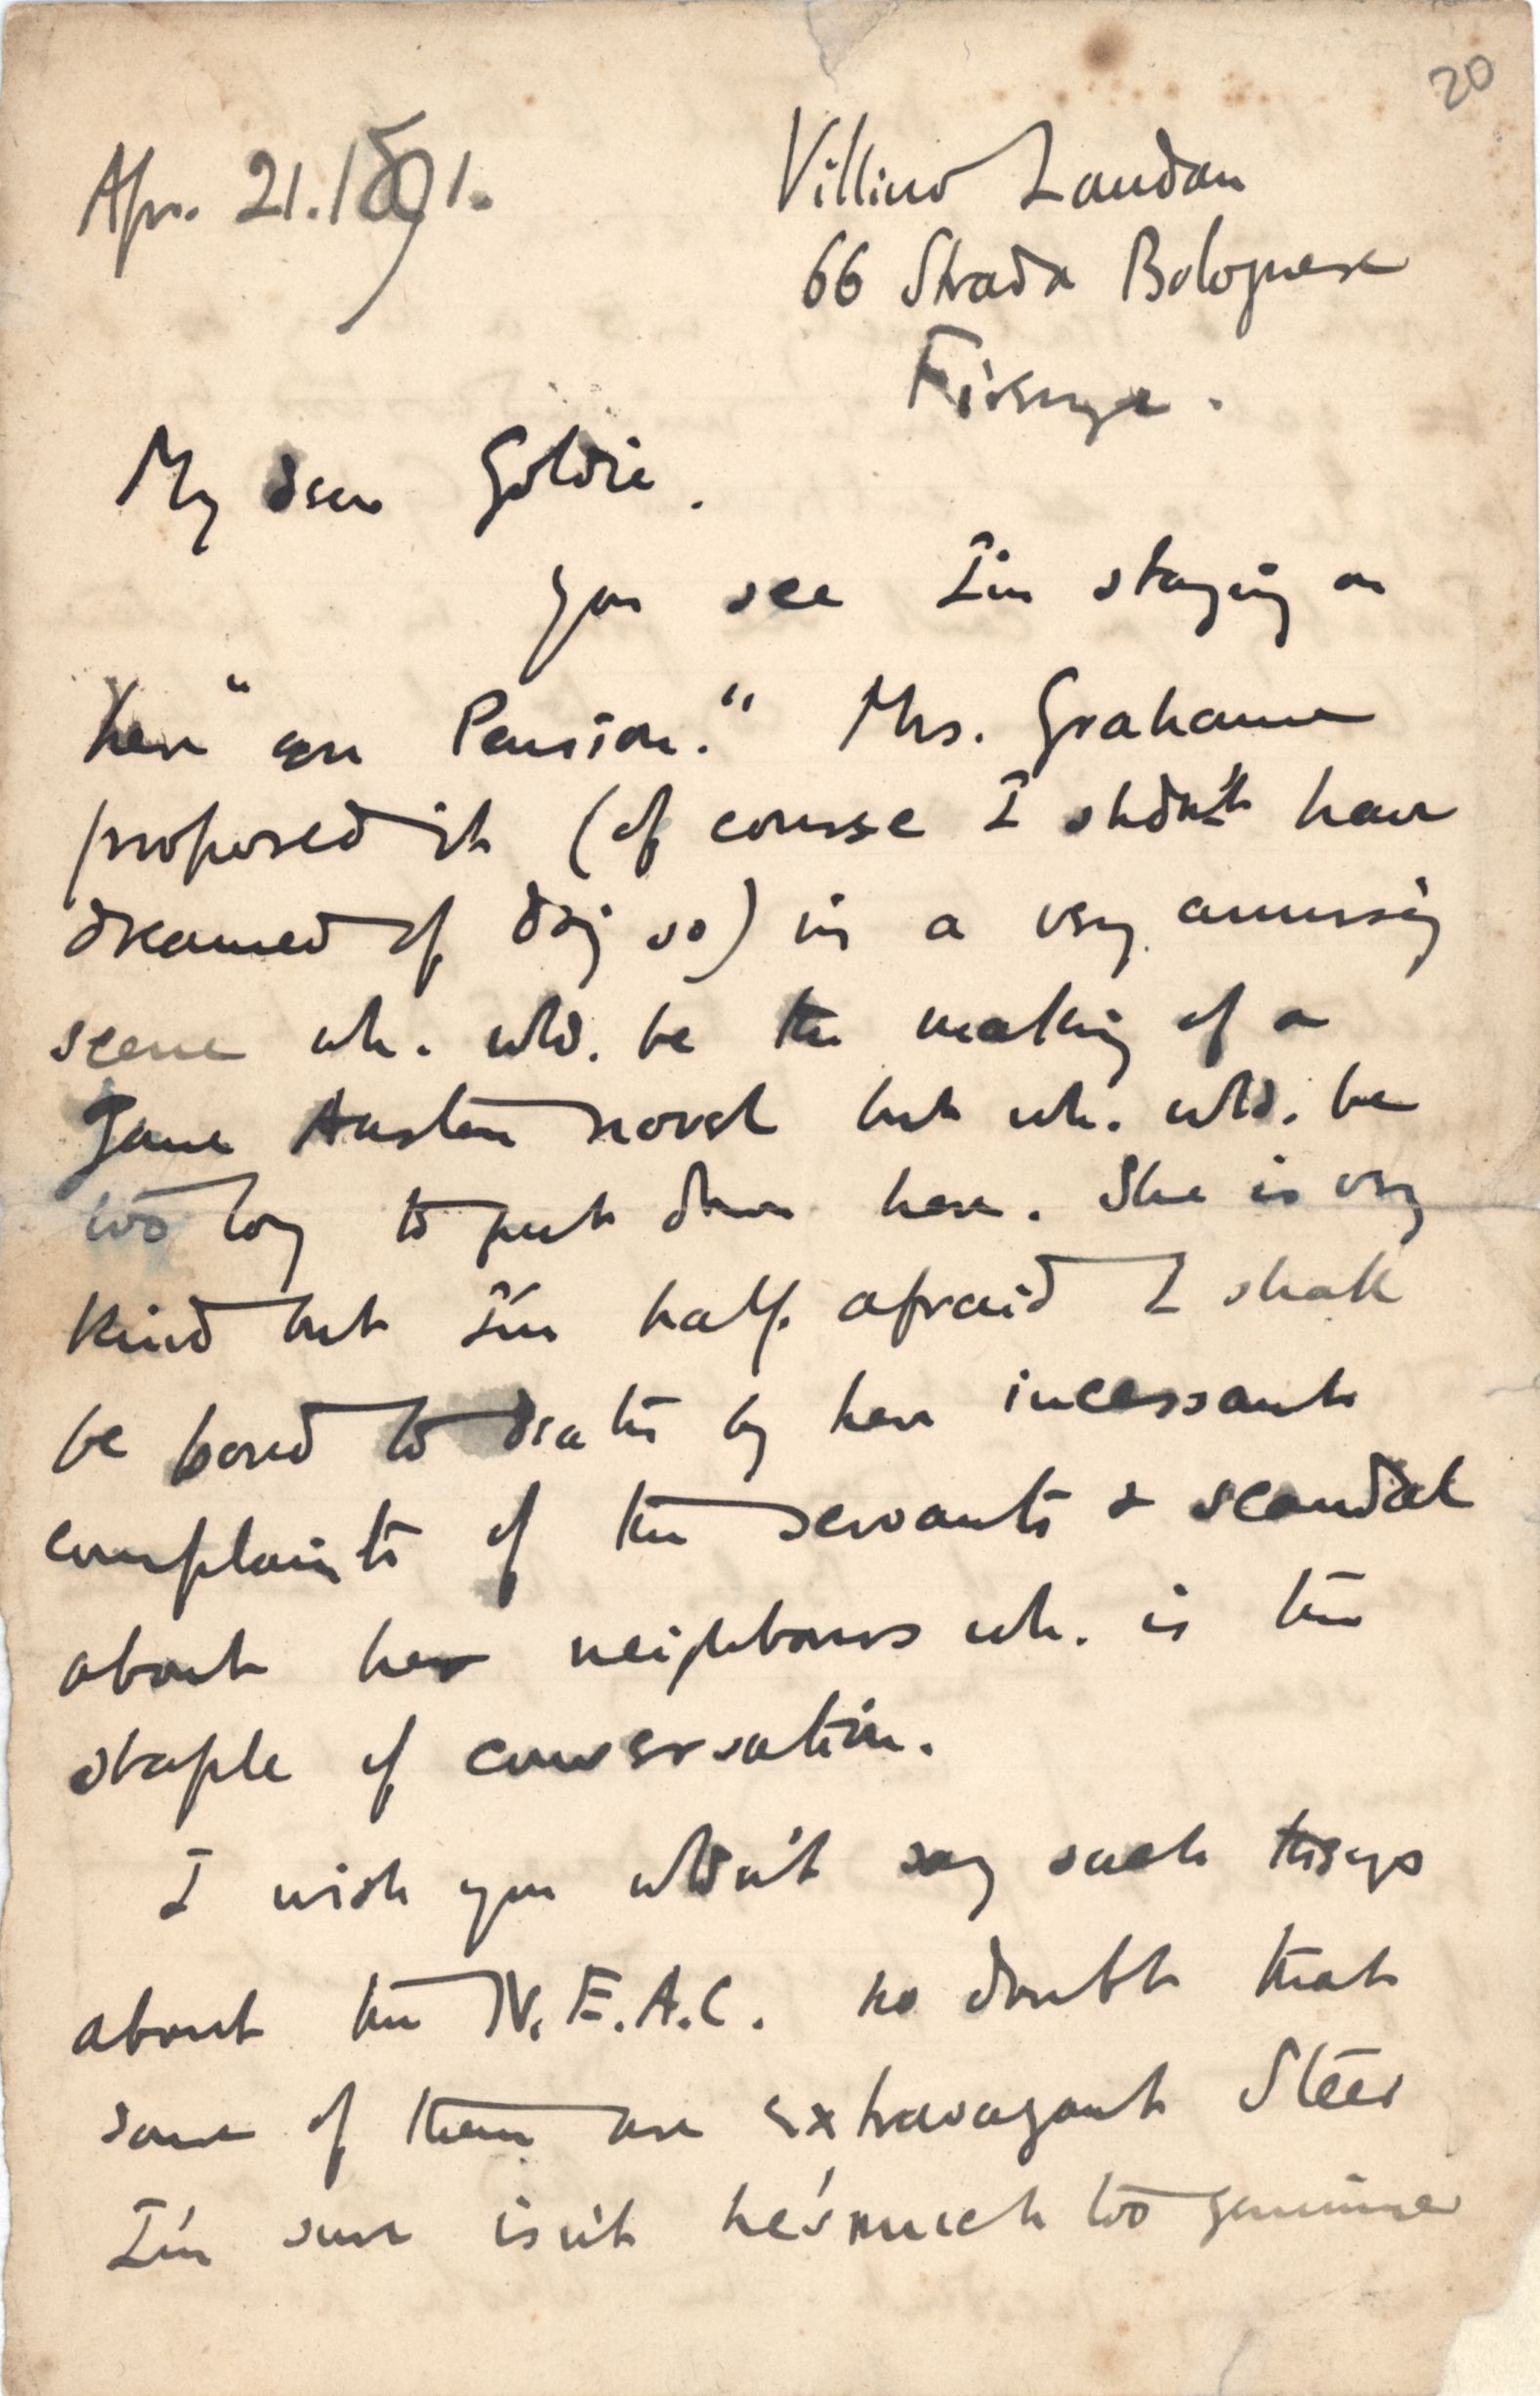 20
Apr. 21. 1891.
Villino Landau
66 Strada Bolognese
Firenze.
My dear Goldie.
you see I'm staying on
here "en Pension." Mrs. Grahame
proposed it (of course I shdn't have
dreamed of doing so) in a very amusing
scene wh. wld. be the making of a
Jane Austen novel but wh. wld. be
too long to put down here. She is very
kind but I'm half afraid I shall
be bored to death by her incessant
complaints of the servants & scandal
about her neighbours wh. is the
staple of conversation.
I wish you wldn't say such things
about the N.E.A.C. no doubt that
some of them are extravagant Steer
I'm sure isn't he's much too genuine